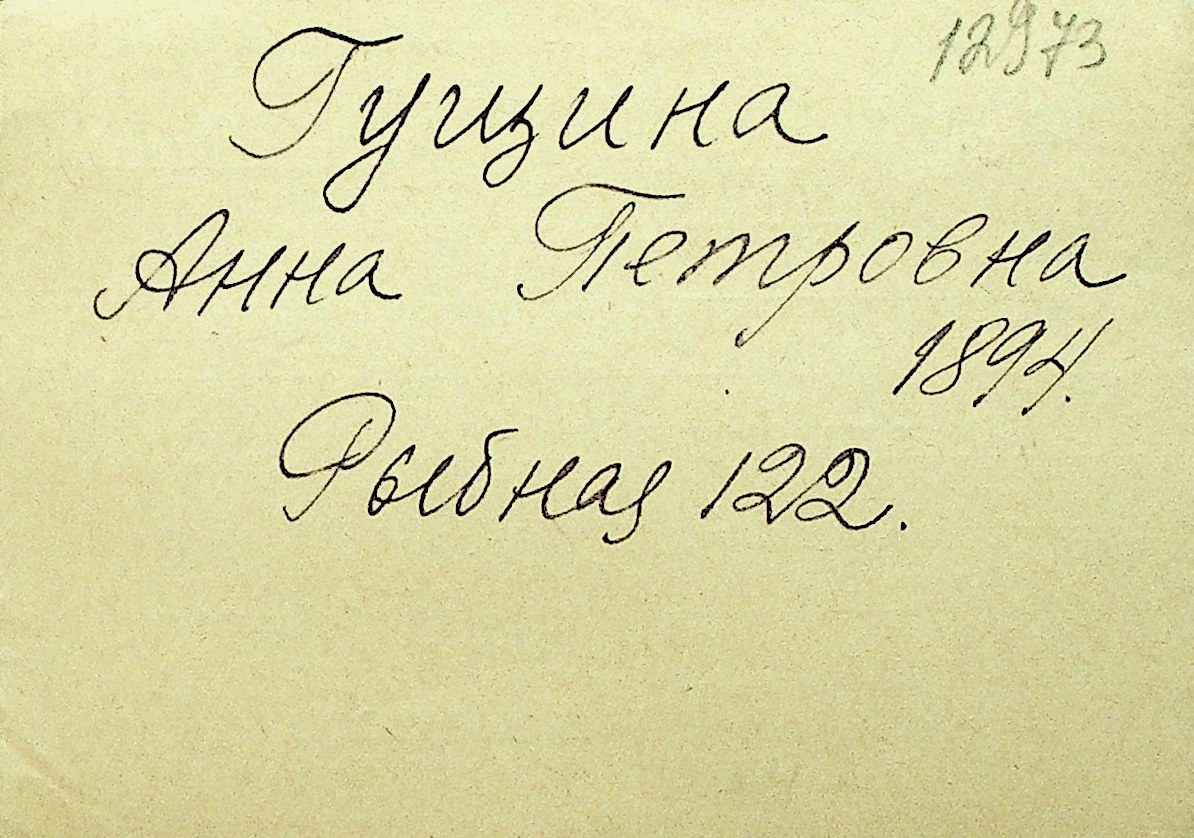 12973
Гущина
Анна Петровна
1894.
Рыбная 122.